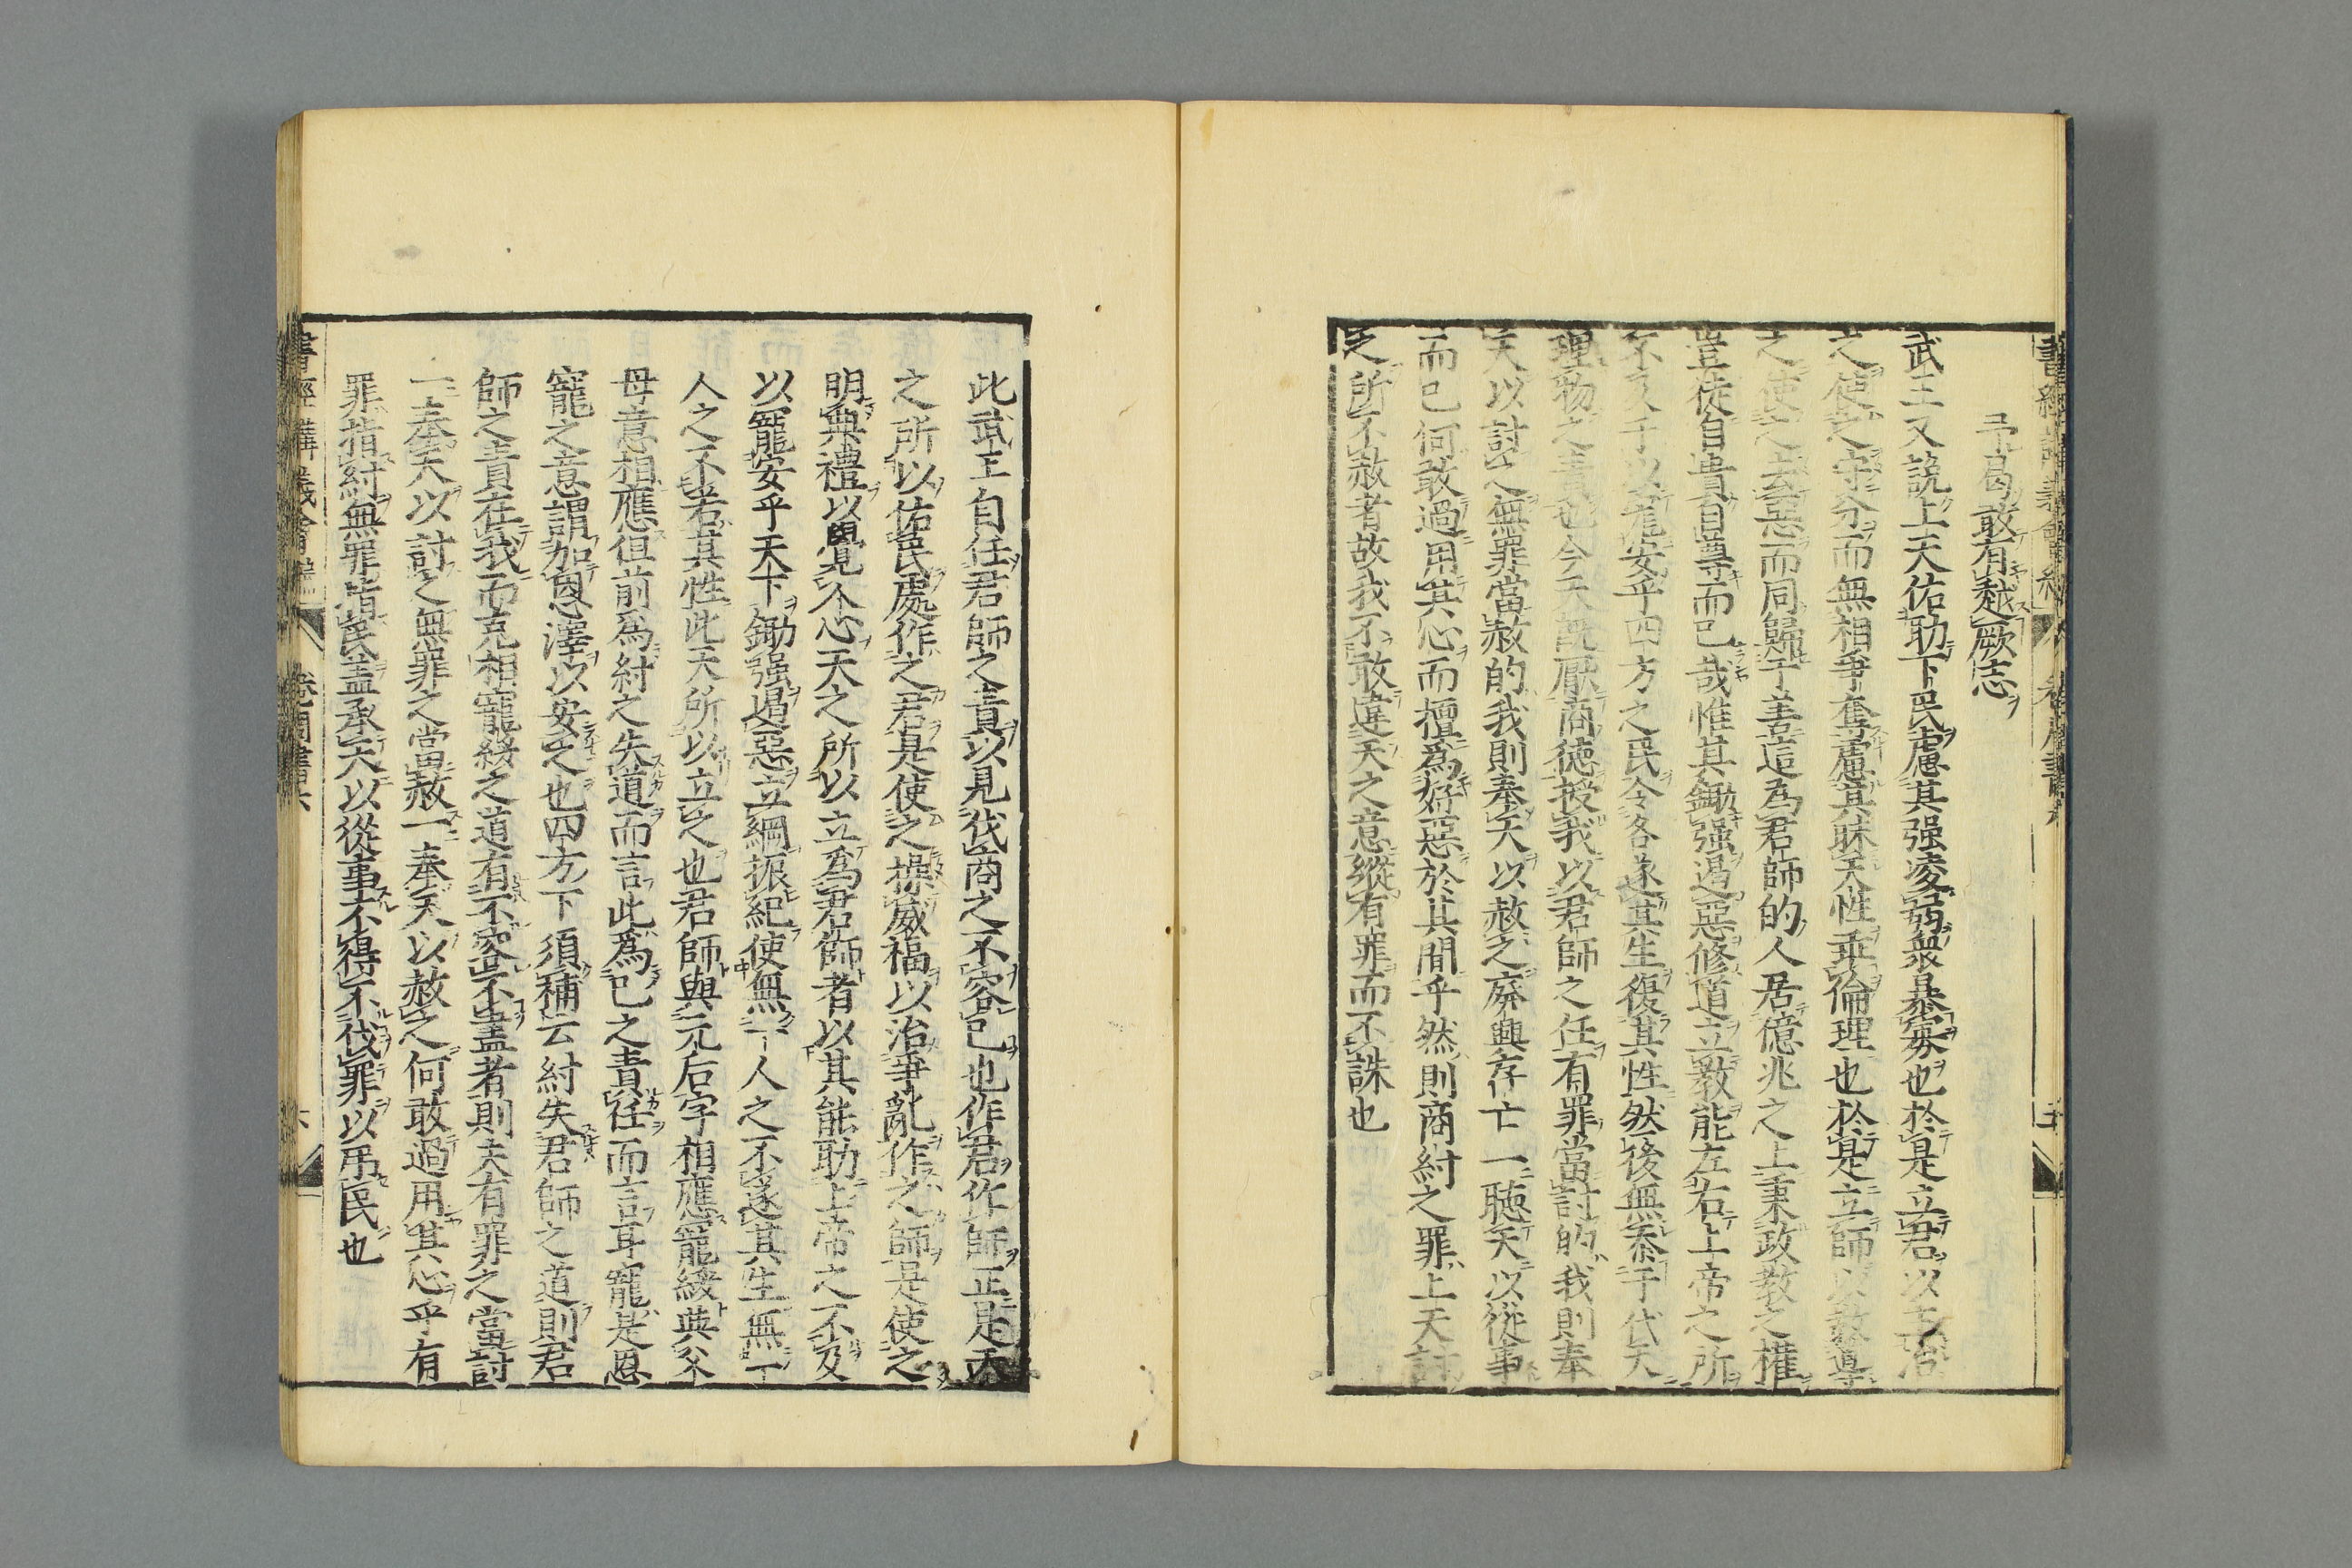 予曷敢有越厥志
武王又說上天佑助下民慮其强凌弱衆暴寡也於是立君以主治
之使之守分而無相爭奪慮其昧天性乖倫理也於是立師以敎導
之使之去惡而同歸于善這為君師的人居億兆之上秉政教之權
豈徒自貴自尊而已哉惟其鋤强遏惡修道立教能左右上帝之所
不及于以寵安乎四方之民令各遂其生復其性然後無忝于代天
理物之責也今天旣厭商德授我以君師之任有罪當討的我則奉
天以討之無罪當赦的我則奉天以赦之廢興存亡一聽天以從事
而已何敢過用其心而擅爲好惡於其間乎然則商紂之罪上天討
之所不赦者故我不敢違天之意縱有罪而不誅也
此武王自任君師之責以見伐商之不容已也作君作師正是天
之所以佑民處作之君是使之操威福以治爭亂作之師是使之
明典禮以覺人心天之所以立爲君師者以其能助上帝之不及
以寵安乎天下鋤强遏惡立綱振紀使無一人之不遂其生無一
人之不若其性此天所以立之也君師與元后字相應寵綏與父
母意相應但前爲紂之失道而言此爲已之責任而言耳寵是恩
寵之意謂加恩澤以安之也四方下須補云紂失君師之道則君
師之責在我而克相寵綏之道有不容不盡者則夫有罪之當討
一奉天以討之無罪之當赦一奉天以赦之何敢過用其心乎有
罪指紂無罪指民盖承天以從事不得不伐罪以吊民也
書經講義會編 卷 周書 六